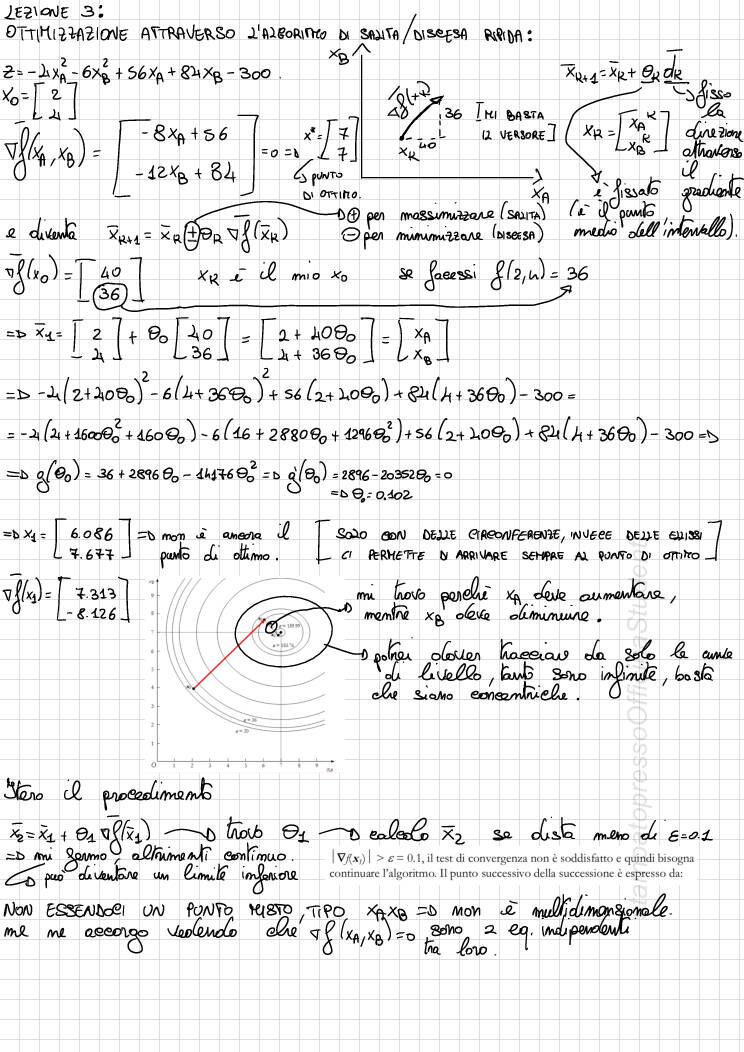 LEZIONE 3:
OTTIMIZZAZIONE ATTRAVERSO L'ALGORITMO DI SALITA/DISCESA RIPIDA:
z = -4x_A² - 6x_B² + 56x_A + 84x_B - 300.
x_0 = [2 4]
∇f(x_A, x_B) = [-8x_A + 56
-12x_B + 84] = 0 => x* = [7 7]
↳ PUNTO
DI OTTIMO.
x_B
∇f(x_k)
36
40
x_k
x_A
[MI BASTA
IL VERSORE]
x_{k+1} = x_k + θ_k d_k
x_k = [x_A^k x_B^k]
→ fisso
la
direzione
attraverso
il
gradiente
è fissato
(è il punto
medio dell'intervallo).
e diventa x_{k+1} = x_k ± θ_k ∇f(x_k)
→ ⊕ per massimizzare (SALITA)
⊖ per minimizzare (DISCESA)
∇f(x_0) = [40 36] x_k è il mio x_0 se facessi f(2,4) = 36
=> x_1 = [2 4] + θ_0 [40 36] = [2 + 40θ_0 4 + 36θ_0] = [x_A x_B]
=> -4(2+40θ_0)² - 6(4+36θ_0)² + 56(2+40θ_0) + 84(4+36θ_0) - 300 =
= -4(4+1600θ_0²+160θ_0) - 6(16+2880θ_0+1296θ_0²) + 56(2+40θ_0) + 84(4+36θ_0) - 300 =>
=> g(θ_0) = 36 + 2896θ_0 - 14176θ_0² => g'(θ_0) = 2896 - 20352θ_0 = 0
=> θ_0 = 0.102
=> x_1 = [6.086 7.677] => non è ancora il
punto di ottimo.
[SOLO CON DELLE CIRCONFERENZE, INVECE DELLE ELLISSI
CI PERMETTE DI ARRIVARE SEMPRE AL PUNTO DI OTTIMO]
∇f(x_1) = [7.313 -8.126]
9
8
7
6
5
4
3
2
1
O 1 2 3 4 5 6 7 8 9
→ mi trovo perché x_A deve aumentare,
mentre x_B deve diminuire.
→ potrei dover tracciare da solo le curve
di livello, tanto sono infinite, basta
che siano concentriche.
Itero il procedimento
x_2 = x_1 + θ_1 ∇f(x_1) → trovo θ_1 → calcolo x_2 se dista meno di ε=0.1
=> mi fermo, altrimenti continuo.
↳ può diventare un limite inferiore
|∇f(x_1)| > ε = 0.1, il test di convergenza non è soddisfatto e quindi bisogna
continuare l'algoritmo. Il punto successivo della successione è espresso da:
NON ESSENDOCI UN PUNTO MISTO, TIPO x_A x_B => non è multidimensionale.
me ne accorgo vedendo che ∇f(x_A, x_B) = 0 sono 2 eq. indipendenti
tra loro.